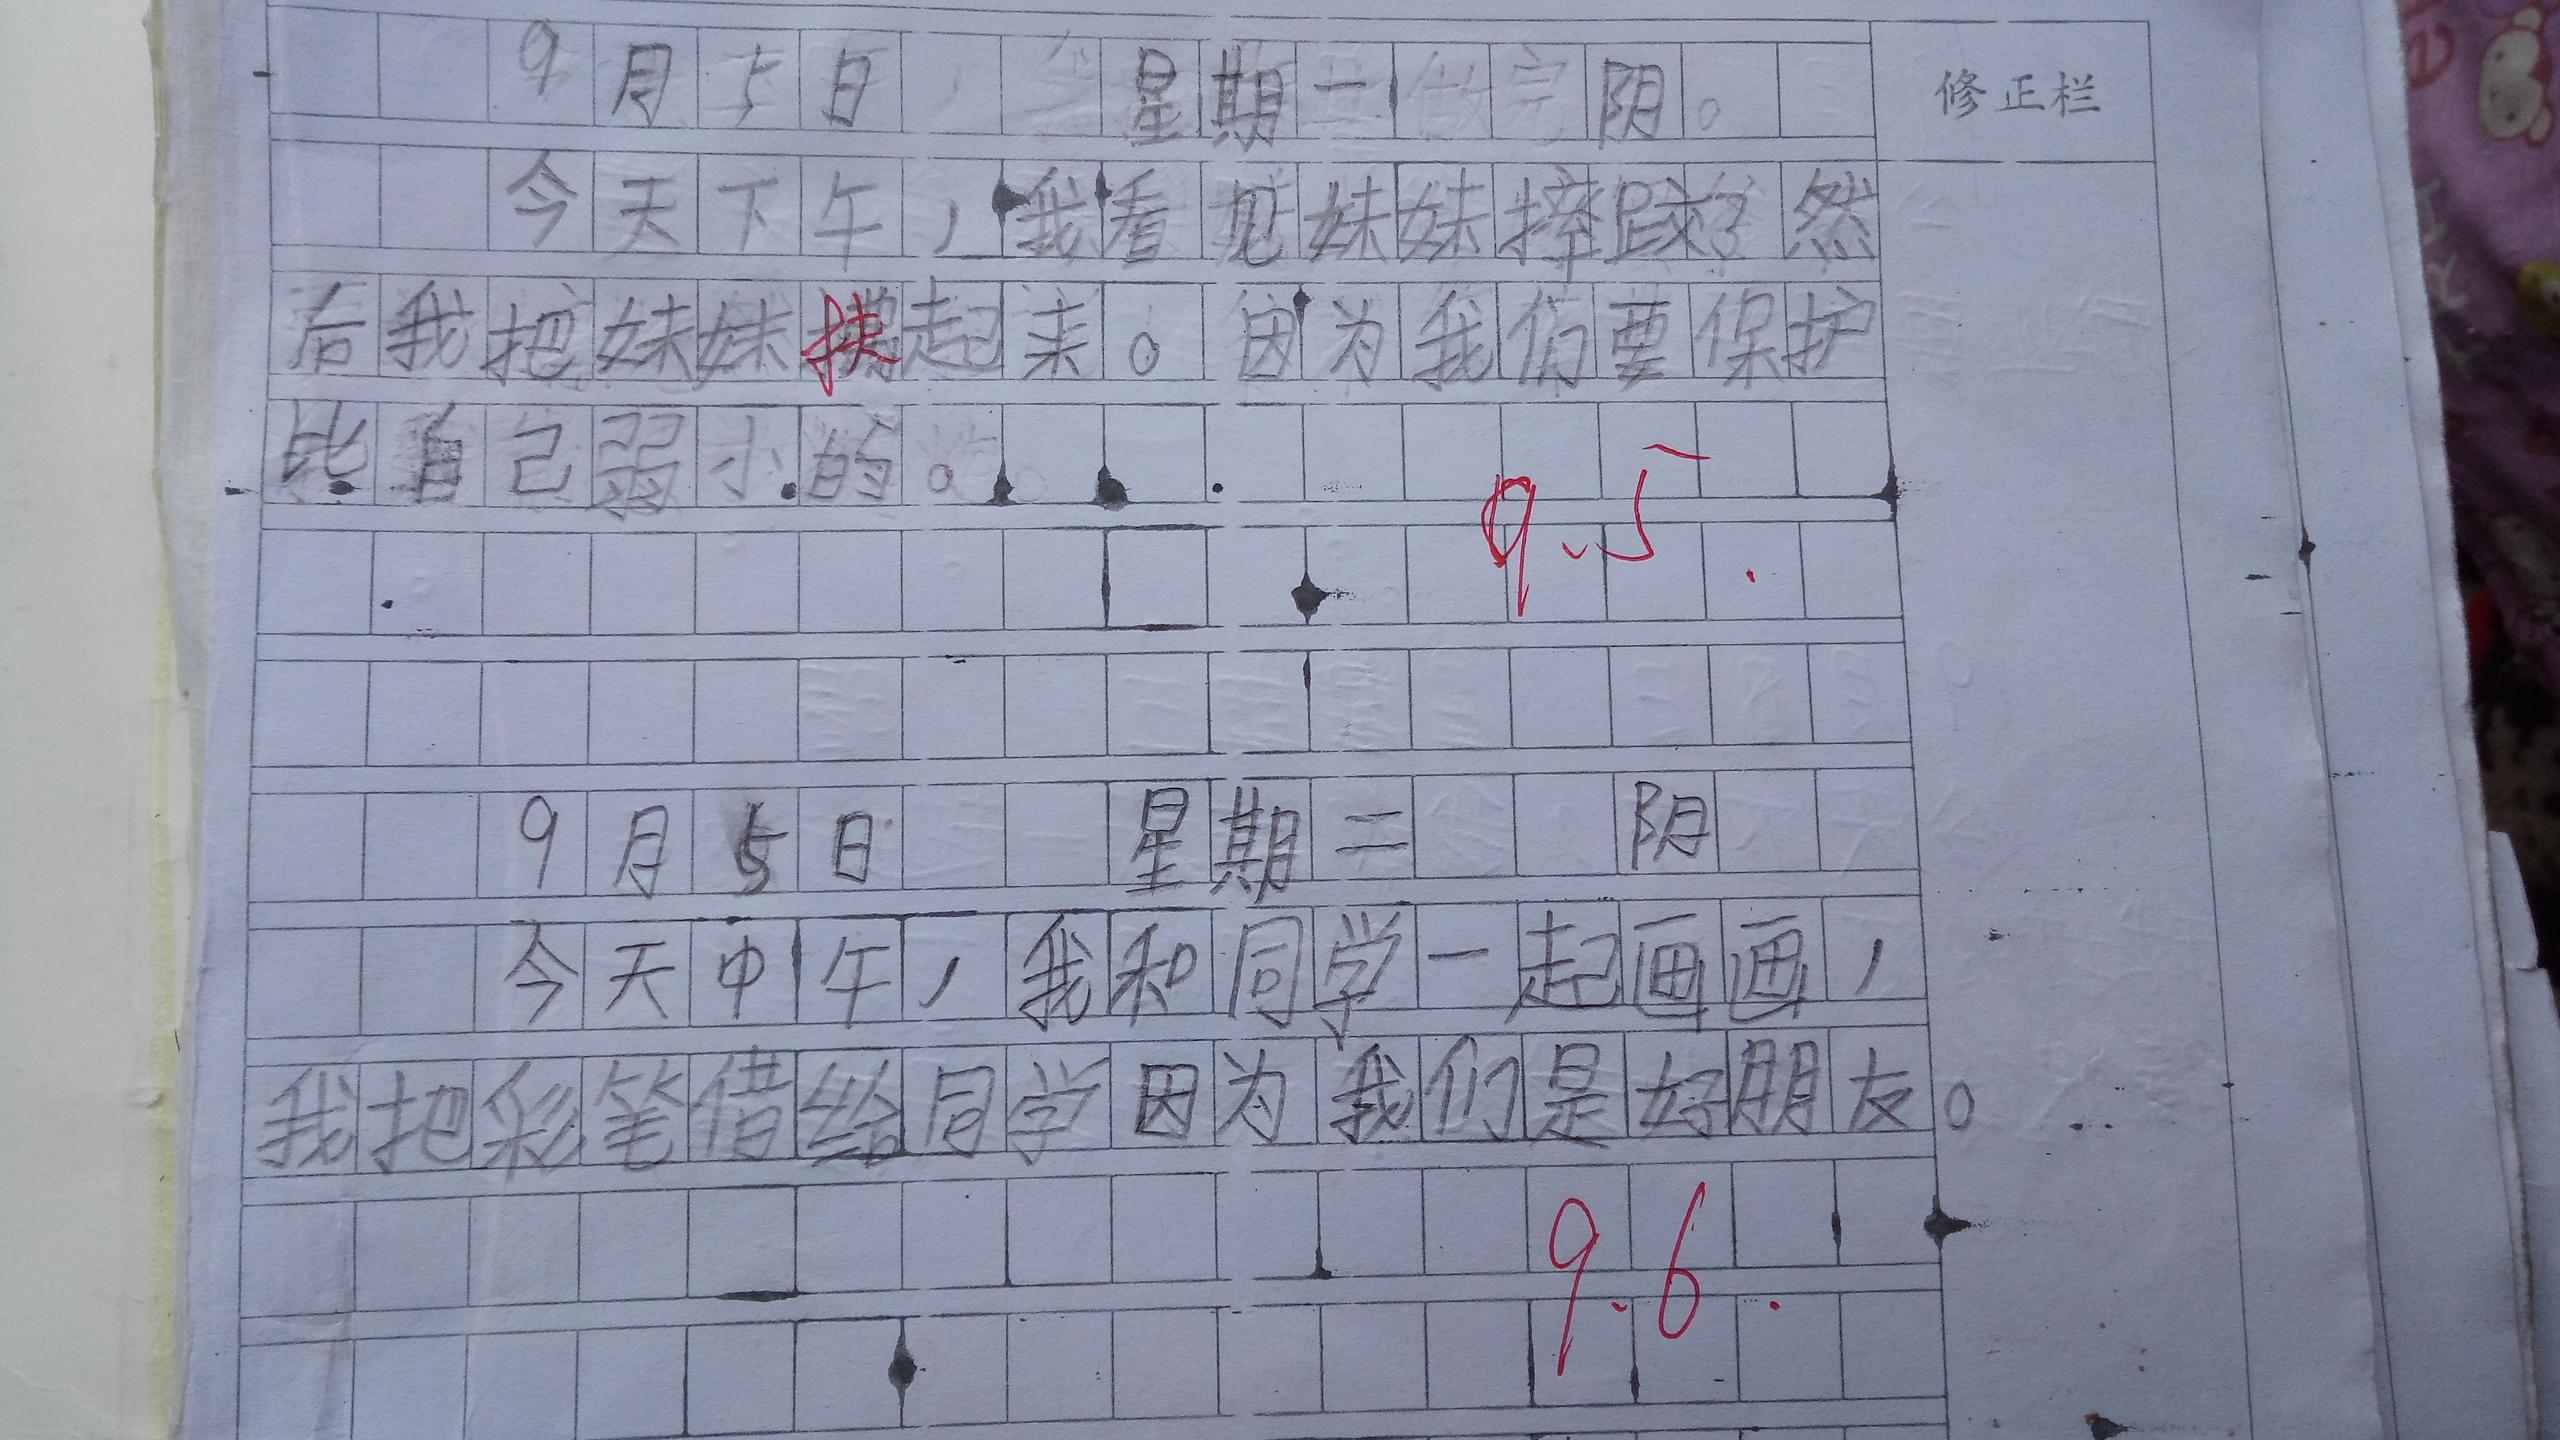 9月5日 星期一 阴。
修正栏
今天下午，我看见妹妹摔跤了然
后我把妹妹扶起来。因为我们要保护
比自己弱小的。
9.5.
9月5日 星期二 阴
今天中午，我和同学一起画画，
我把彩笔借给同学因为我们是好朋友。
9.6.